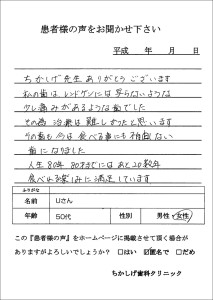 患者様の声をお聞かせ下さい
平成　年　月　日
ちかしげ先生ありがとうございます
私の歯はレントゲンには写らないような
少し痛みがあるような歯でした
その為治療は難しかったと思います
その歯も今は食べる事にも相面ない
歯になりました
人生80年 80才までにはあと20数年
食べれる楽しみに満足しています
ふりがな
名前　Uさん
年齢　50代　性別　男性・女性
この『患者様の声』をホームページに掲載させて頂く場合が
ありますがよろしいでしょうか？　□はい　☑匿名で　□だめ
ちかしげ歯科クリニック